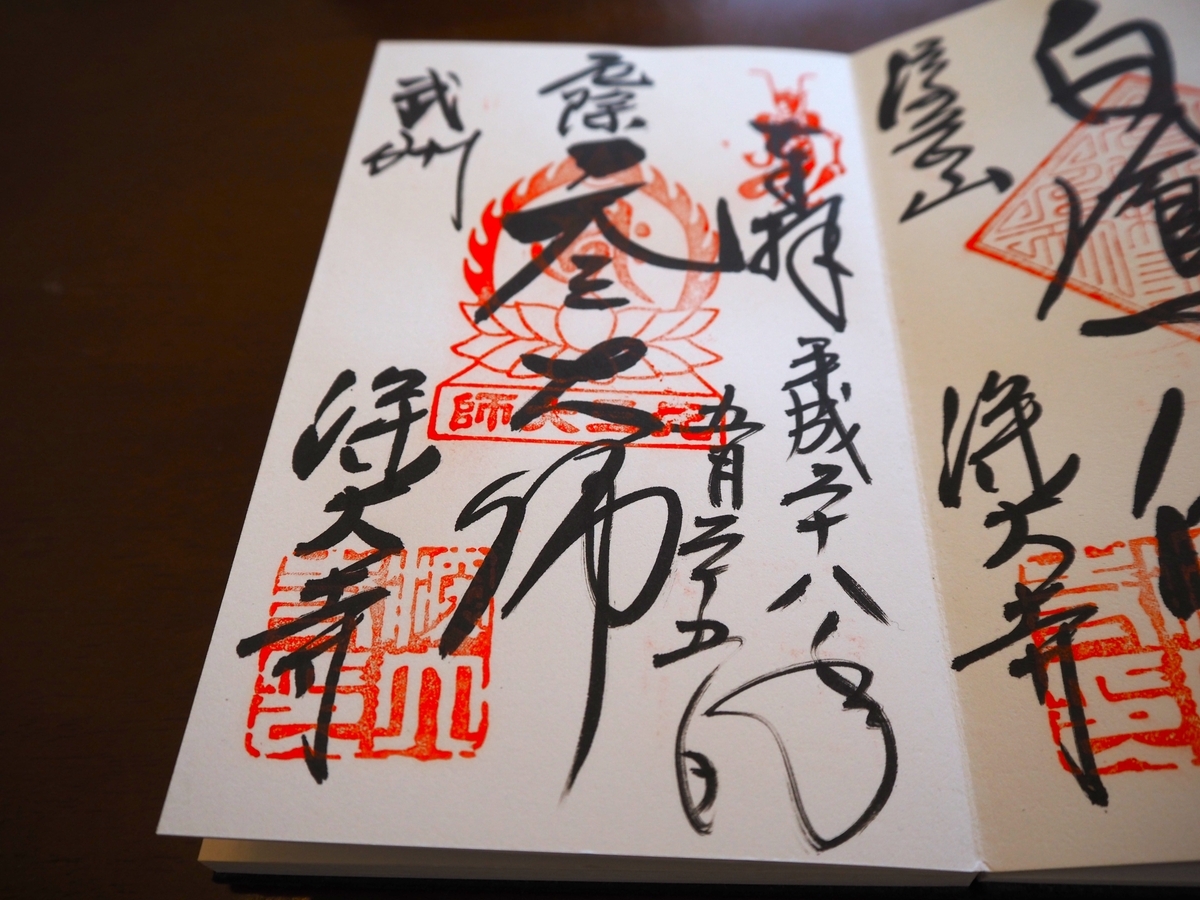 白鳳
浮岳山
深大寺
奉拝
平成二十八年
五月二十五日
厄除
元三大師
元三大師
武州
深大寺